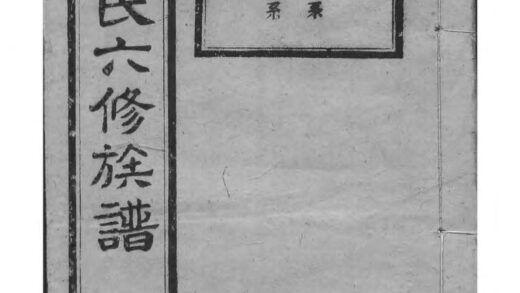 系
系
氏六修族譜